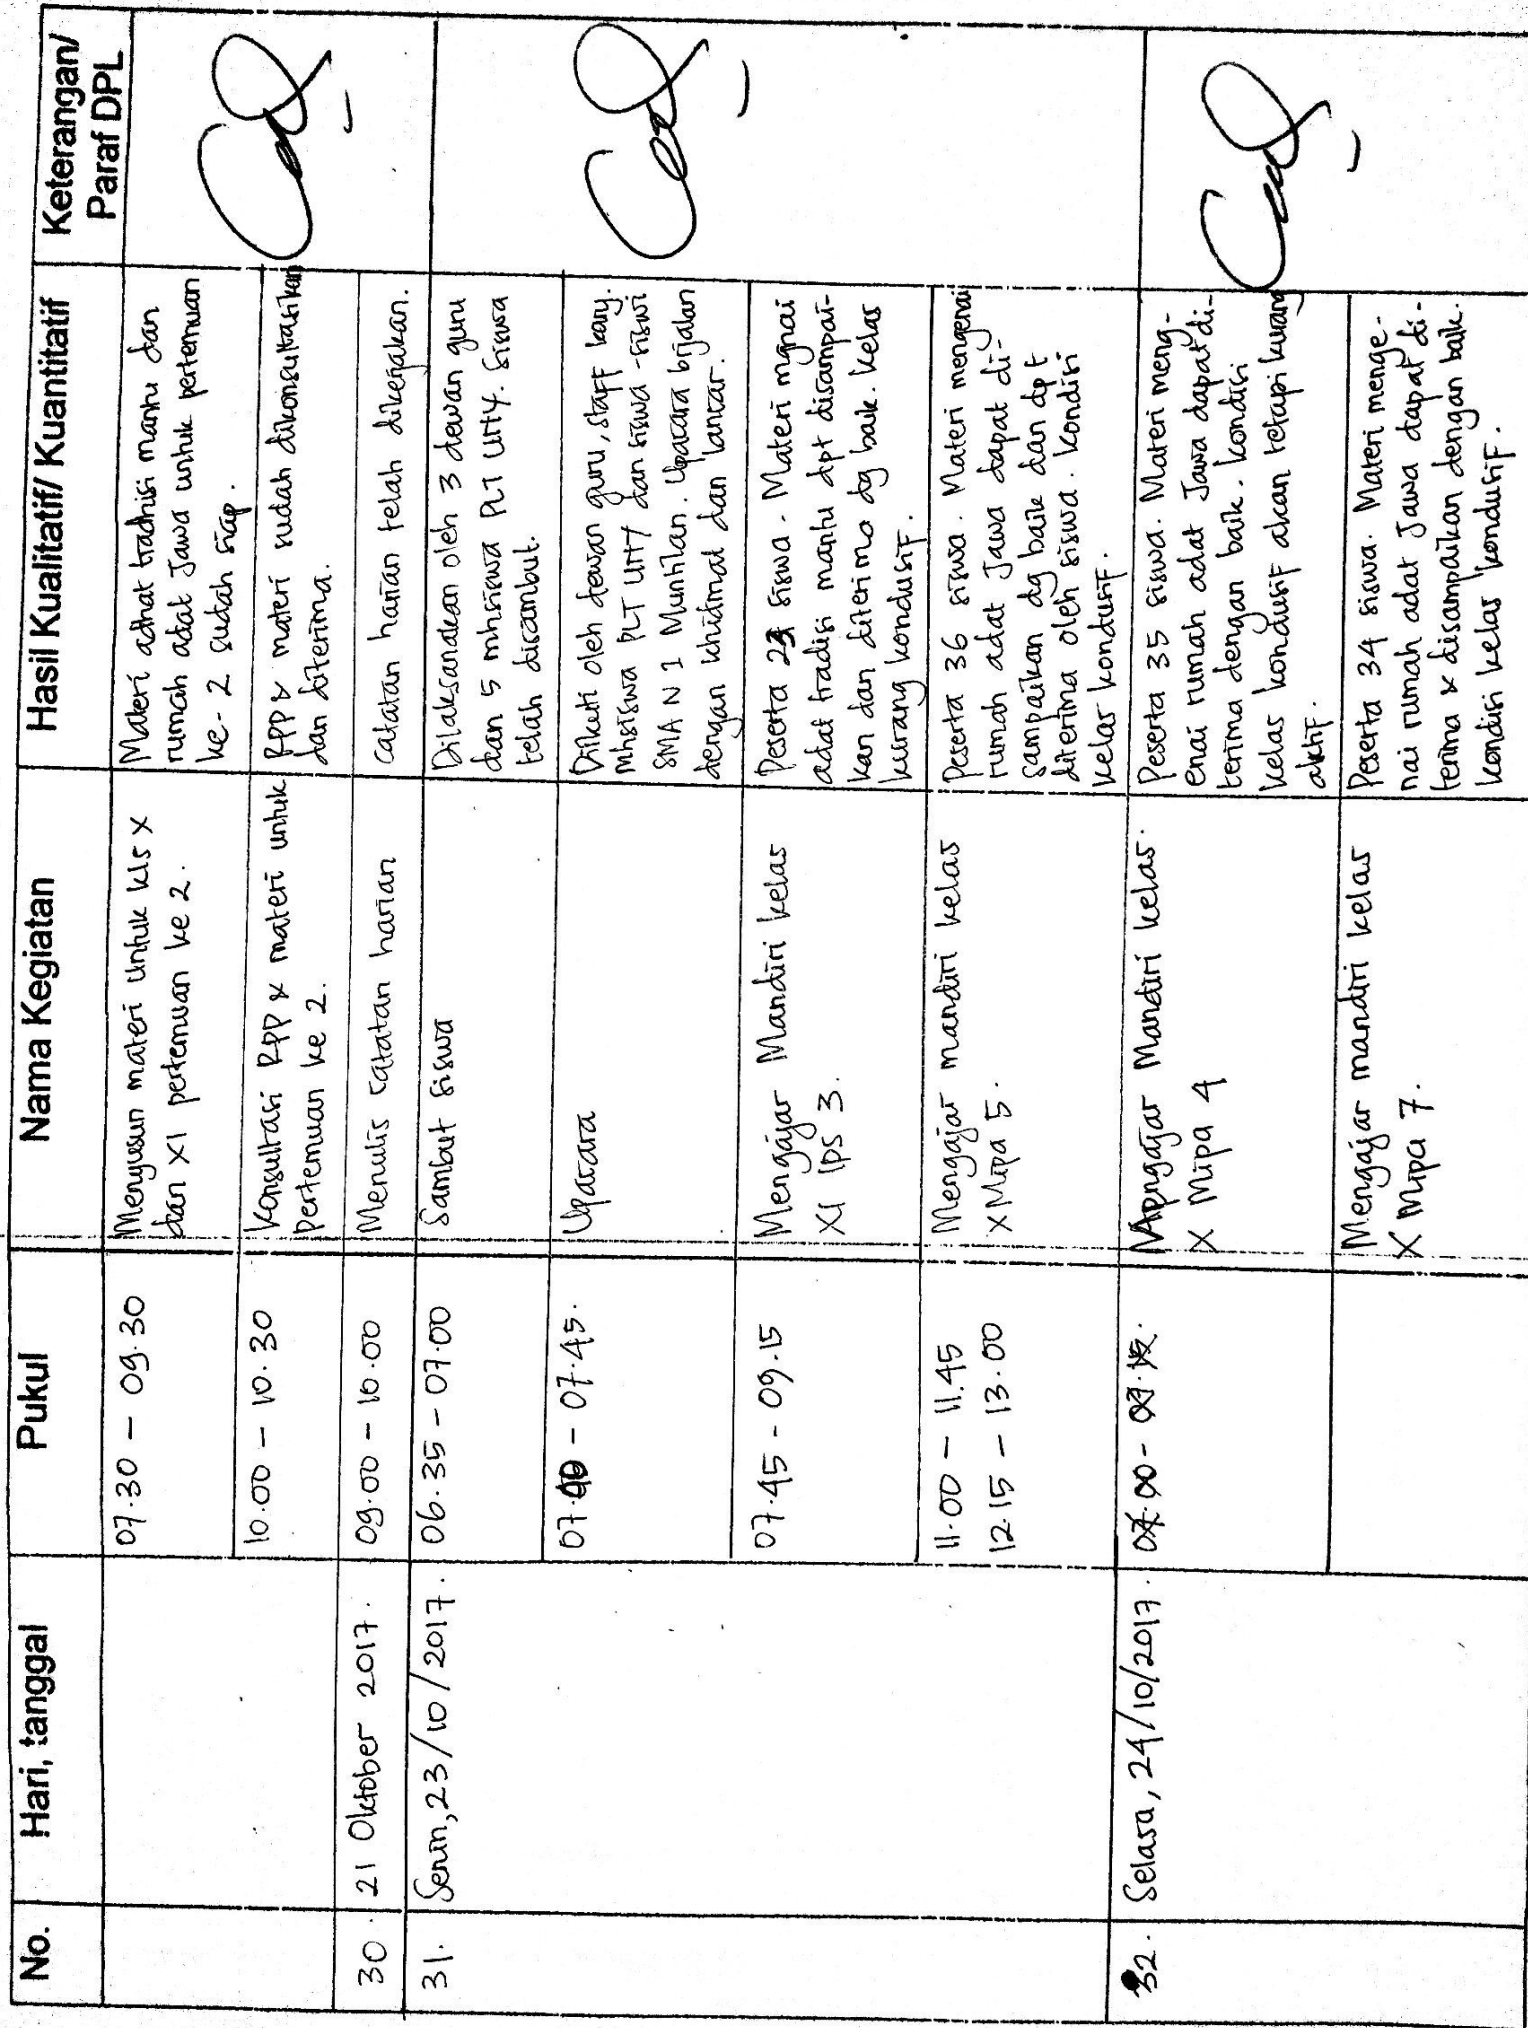 No.
Hari, tanggal
Pukul
Nama Kegiatan
Hasil Kualitatif/ Kuantitatif
Keterangan/
Paraf DPL
07.30 – 09.30
Menyusun materi untuk kls X
dan XI pertemuan ke 2.
Materi adhat tradhisi mantu dan
rumah adat Jawa untuk pertemuan
ke-2 sudah siap.
10.00 – 10.30
Konsultasi RPP & materi untuk
pertemuan ke 2.
RPP & materi sudah dikonsultasikan
dan diterima.
30.
21 Oktober 2017.
09.00 – 10.00
Menulis catatan harian
catatan harian telah dikerjakan.
31.
Senin, 23/10/2017.
06.35 – 07.00
Sambut siswa
Dilaksanakan oleh 3 dewan guru
dan 5 mhsiswa PLT UNY. Siswa
telah disambut.
07.00 – 07.45.
Upacara
Diikuti oleh dewan guru, staff kary.
mhsiswa PLT UNY dan siswa-siswi
SMA N 1 Muntilan. Upacara brjalan
dengan khidmat dan lancar.
07.45 – 09.15
Mengajar Mandiri kelas
XI IPS 3.
Peserta siswa. Materi mgnai
adat tradisi mantu dpt disampai-
kan dan diterima dg baik. Kelas
kurang kondusif.
11.00 – 11.45
12.15 – 13.00
Mengajar mandiri kelas
X Mipa 5.
Peserta 36 siswa. Materi mengenai
rumah adat Jawa dapat di-
sampaikan dg baik dan dpt
diterima oleh siswa. Kondisi
kelas kondusif.
32.
Selasa, 24/10/2017.
Mengajar Mandiri kelas.
X Mipa 4
Peserta 35 siswa. Materi meng-
enai rumah adat Jawa dapat di-
terima dengan baik. Kondisi
kelas kondusif akan tetapi kurang
aktif.
Mengajar mandiri kelas
X Mipa 7.
Peserta 34 siswa. Materi menge-
nai rumah adat Jawa dapat di-
terima & disampaikan dengan baik.
Kondisi kelas kondusif.